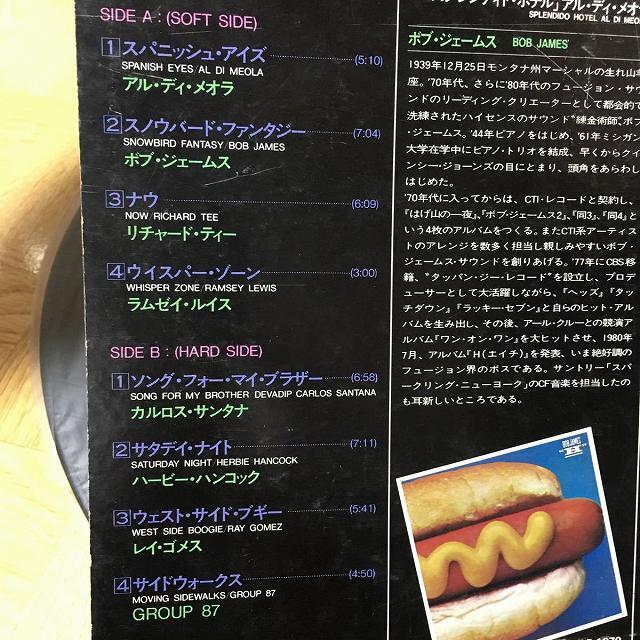 SIDE A : (SOFT SIDE)
1 スパニッシュ・アイズ (5:10)
SPANISH EYES/AL DI MEOLA
アル・ディ・メオラ
2 スノウバード・ファンタジー (7:04)
SNOWBIRD FANTASY/BOB JAMES
ボブ・ジェームス
3 ナウ (6:09)
NOW RICHARD TEE
リチャード・ティー
4 ウイスパー・ゾーン (3:00)
WHISPER ZONE/RAMSEY LEWIS
ラムゼイ・ルイス
SIDE B : (HARD SIDE)
1 ソング・フォー・マイ・ブラザー (6:58)
SONG FOR MY BROTHER DEVADIP CARLOS SANTANA
カルロス・サンタナ
2 サタデイ・ナイト (7:11)
SATURDAY NIGHT HERBIE HANCOCK
ハービー・ハンコック
3 ウェスト・サイド・ブギー (5:41)
WEST SIDE BOOGIE/RAY GOMEZ
レイ・ゴメス
4 サイドウォークス (4:50)
MOVING SIDEWALKS/GROUP 87
GROUP 87
ホテル」アル・ディ・メオラ
SPLENDIDO HOTEL AL DI MEO
ボブ・ジェームス BOB JAMES
1939年12月25日モンタナ州マーシャルの生れ山羊
座。'70年代、さらに'80年代のフュージョン・サウ
ンドのリーディング・クリエーターとして都会的で
洗練されたハイセンスのサウンド"錬金術師"、ボブ
・ジェームス。'44年ピアノをはじめ、'61年ミシガン
大学在学中にピアノ・トリオを結成、早くからクイ
ンシー・ジョーンズの目にとまり、頭角をあらわし
はじめた。
'70年代に入ってからは、CTI・レコードと契約し、
『はげ山の一夜』、『ボブ・ジェームス2』、『同3』、『同4』と
いう4枚のアルバムをつくる。またCTI系アーティス
トのアレンジを数多く担当し親しみやすいボブ・
ジェームス・サウンドを創りあげる。'77年にCBS移
籍、"タッパン・ジー・レコード"を設立し、プロデ
ューサーとして大活躍しながら、『ヘッズ』『タッ
チダウン』『ラッキー・セブン』と自らのヒット・アル
バムを生み出し、その後、アール・クルーとの競演ア
ルバム『ワン・オン・ワン』を大ヒットさせ、1980年
7月、アルバム『H(エイチ)』を発表、いま絶好調の
フュージョン界のボスである。サントリー「スパ
ークリング・ニューヨーク」のCF音楽を担当したの
も耳新しいところである。
BOB JAMES
"H"